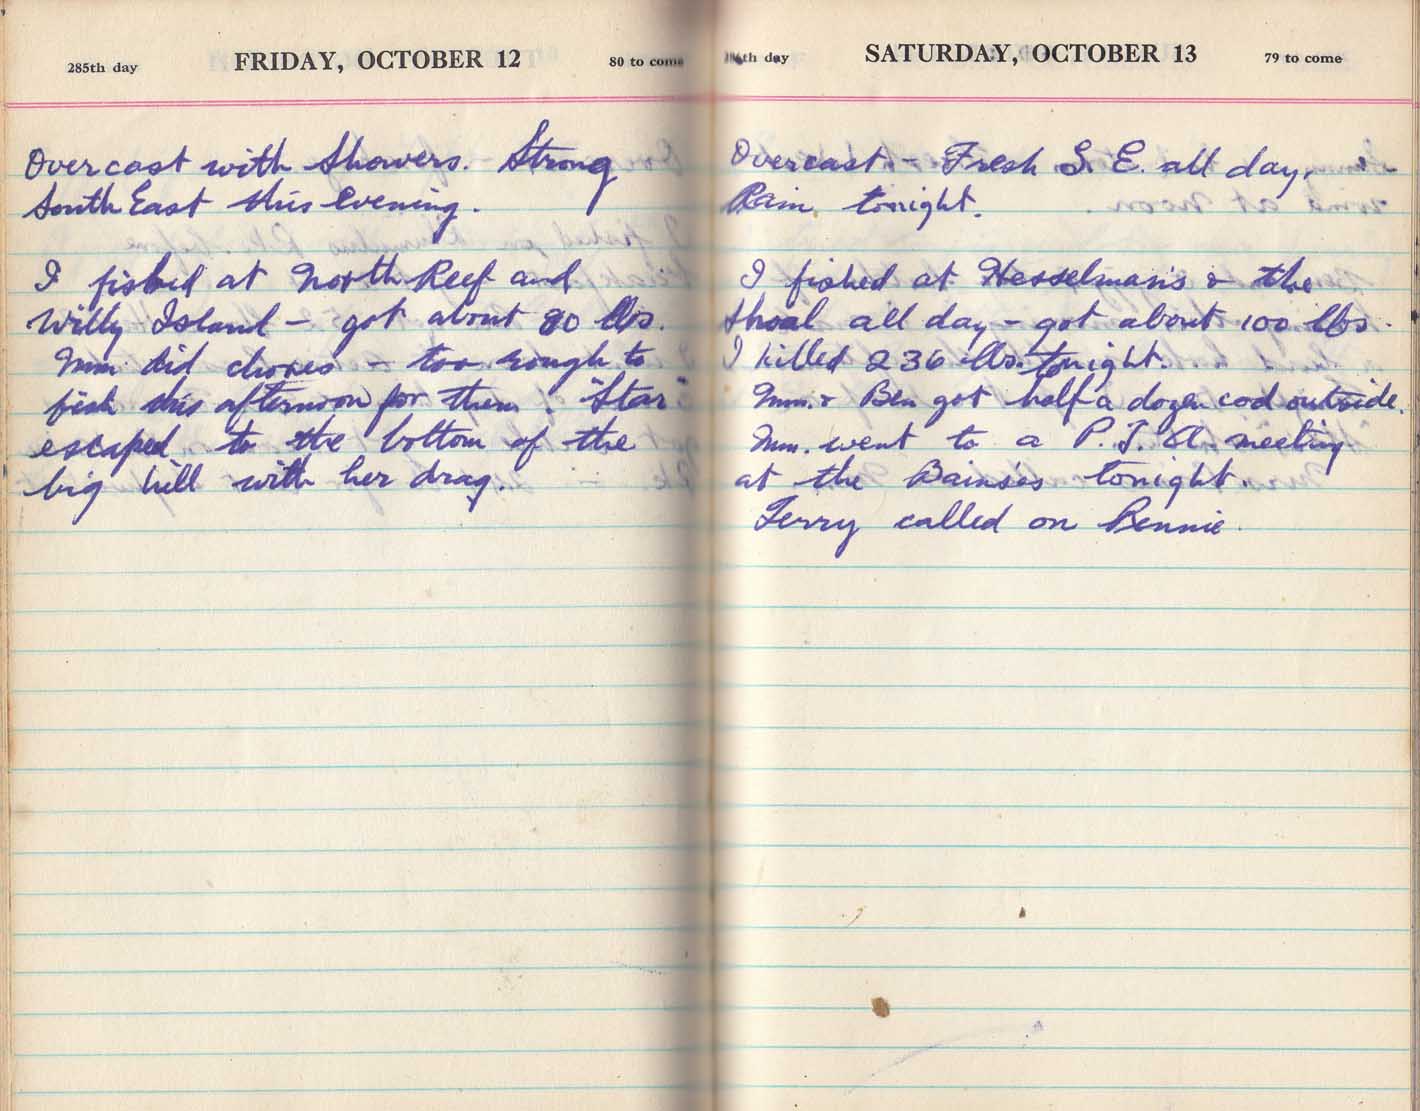 285th day FRIDAY, OCTOBER 12 80 to come
Overcast with Showers. Strong
South East this Evening.
I fished at North Reef and
Willy Island - got about 80 lbs.
Mm. did chores - too rough to
fish this afternoon for them. "Star"
escaped to the bottom of the
big hill with her drag.
286th day SATURDAY, OCTOBER 13 79 to come
Overcast. - Fresh S. E. all day,
Rain tonight.
I fished at Hesselman's & the
Shoal all day - got about 100 lbs.
I killed 236 lbs. tonight.
Mm. & Ben got half a dozen cod outside.
Mm. went to a P. T. A meeting
at the Bains's tonight.
Terry called on Bennie.